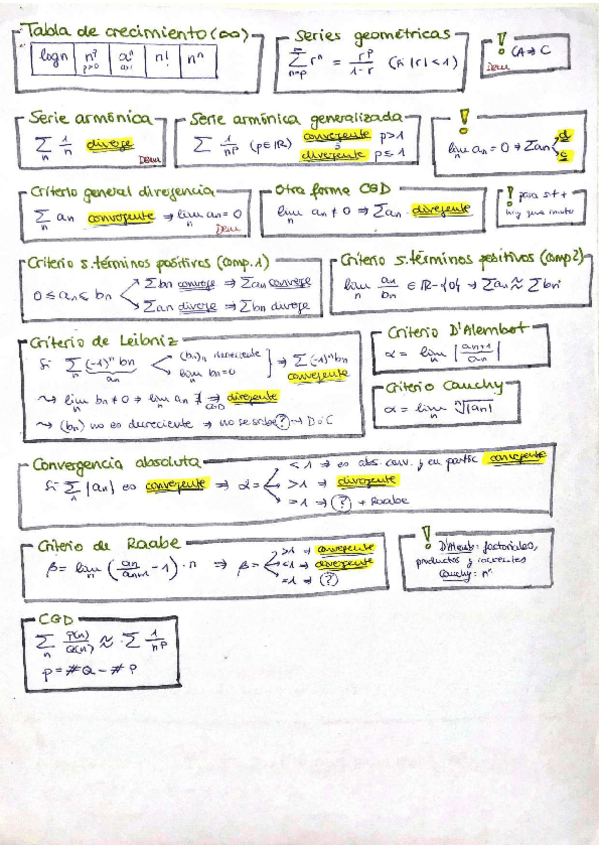 Tabla de crecimiento (∞)
log n | n^p p>0 | a^n a>1 | n! | n^n
Series geométricas
∑_{n=p}^{∞} r^n = r^p/(1-r) (si |r|<1)
! CA ⇒ C
Dem
Serie armónica
∑_n 1/n diverge
Dem
Serie armónica generalizada
∑ 1/n^p (p∈ℝ) convergente p>1
divergente p≤1
!
lim_n an = 0 ⇏ ∑an d
c
Criterio general divergencia
∑_n an convergente ⇒ lim_n an = 0
Dem
Otra forma CGD
lim_n an ≠ 0 ⇒ ∑an divergente
! para s t +
hay que
Criterio s. términos positivos (comp. 1)
0 ≤ an ≤ bn
∑bn converge ⇒ ∑an converge
∑an diverge ⇒ ∑bn diverge
Criterio s. términos positivos (comp 2)
lim_n an/bn ∈ ℝ-{0} ⇒ ∑an ≈ ∑bn
Criterio de Leibniz
Si ∑_n (-1)^n bn
an
(bn)n decreciente
lim_n bn = 0
⇒ ∑(-1)^n bn
convergente
↝ lim_n bn ≠ 0 ⇒ lim_n an ∄ ⇒ divergente
CGD
↝ (bn) no es decreciente → no se sabe ? → D o C
Criterio D'Alembert
α = lim_n |an+1/an|
Criterio Cauchy
α = lim_n ⁿ√|an|
Convergencia absoluta
Si ∑_n |an| es convergente ⇒ α =
<1 ⇒ es abs. conv. y en partic convergente
>1 ⇒ divergente
=1 ⇒ ? → Raabe
Criterio de Raabe
β = lim_n (an/an+1 - 1) · n ⇒ β =
>1 ⇒ convergente
<1 ⇒ divergente
=1 ⇒ ?
! D'Alembt: factoriales,
productos y
Cauchy: nⁿ
CGD
∑_n P(n)/Q(n) ≈ ∑ 1/n^p
p = #Q - #P